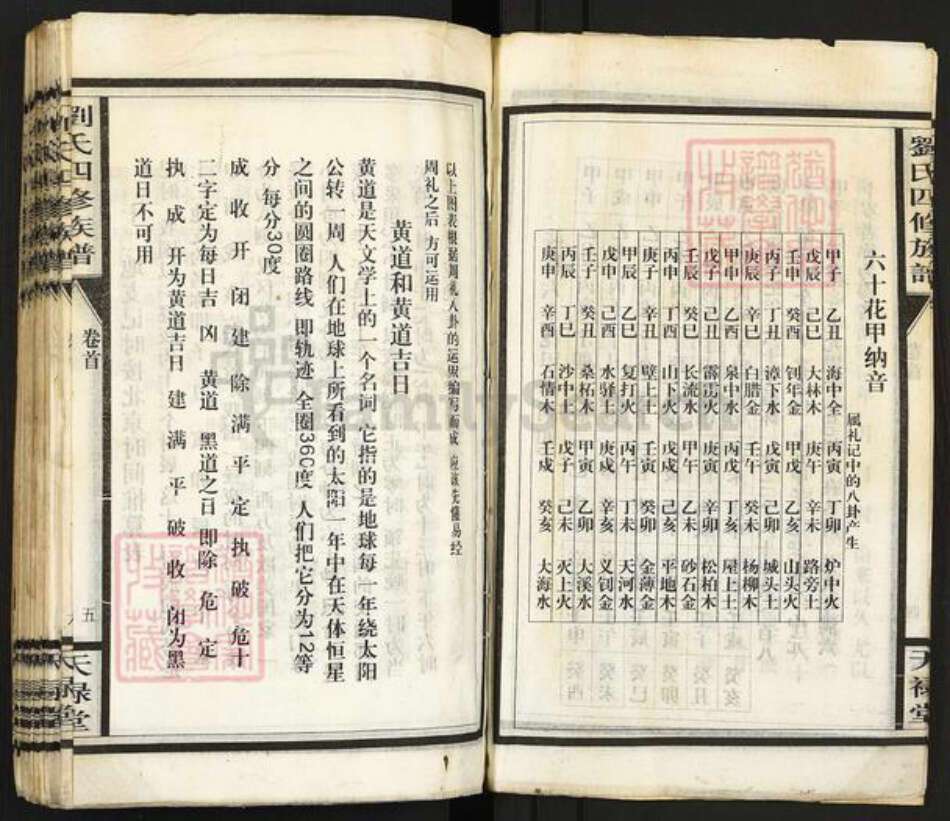 劉氏四修族譜
天禄堂
六十花甲纳音
属礼记中的八卦产生
甲子 乙丑 海中全 丙寅 丁卯 炉中火
戊辰 己巳 大林木 庚午 辛未 路旁土
壬申 癸酉 钊年金 甲戌 乙亥 山头火
丙子 丁丑 漳下水 戊寅 己卯 城头土
庚辰 辛巳 白腊金 壬午 癸未 杨柳木
甲申 乙酉 泉中水 丙戊 丁亥 屋上土
戊子 己丑 霹雳火 庚寅 辛卯 松柏木
壬辰 癸巳 长流水 甲午 乙未 砂石金
丙申 丁酉 山下火 戊戌 己亥 平地木
庚子 辛丑 壁上土 壬寅 癸卯 金薄金
甲辰 乙巳 复打火 丙午 丁未 天河水
戊申 己酉 水驿土 庚戌 辛亥 义钊金
壬子 癸丑 桑柘木 甲寅 乙卯 大溪水
丙辰 丁巳 沙中土 戊子 己未 灭上火
庚申 辛酉 石情木 壬戌 癸亥 大海水
以上图表根据周礼八卦的运畀编写而成 应该先懂易经
周礼之后 方可运用
黄道和黄道吉日
黄道是天文学上的一个名词 它指的是地球每一年绕太阳
公转一周 人们在地球上所看到的太阳一年中在天体恒星
之间的圆圈路线 即轨迹 全圈360度 人们把它分为12等
分 每分30度
成 收 开 闭 建 除 满 平 定 执 破 危十
二字定为每日吉 凶 黄道 黑道之日 即除 危 定
执 成 开为黄道吉日 建 满 平 破 收 闭为黑
道日不可用
劉氏四修族谱
卷首
五
天禄堂